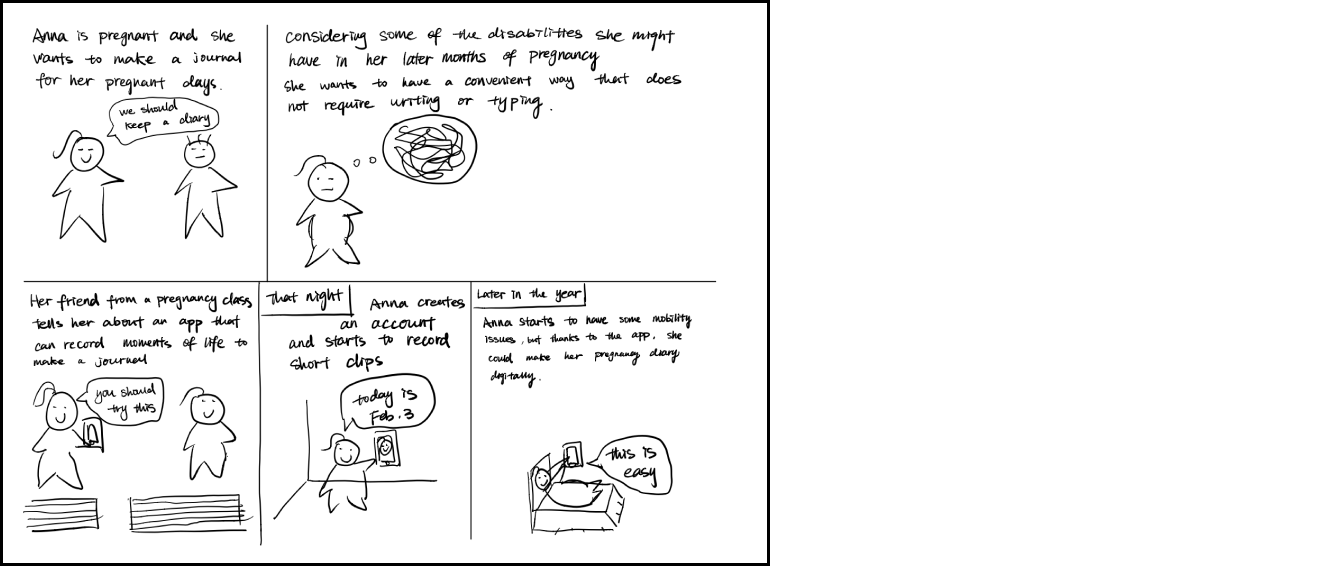 Anna is pregnant and she
wants to make a journal
for her pregnant days.
we should
keep a diary
considering some of the disabilities she might
have in her later months of pregnancy
she wants to have a convenient way that does
not require writing or typing.
Her friend from a pregnancy class
tells her about an app that
can record moments of life to
make a journal
you should
try this
That night
Anna creates
an account
and starts to record
short clips
today is
Feb. 3
Later in the year
Anna starts to have some mobility
issues, but thanks to the app, she
could make her pregnancy diary
digitally.
this is
easy